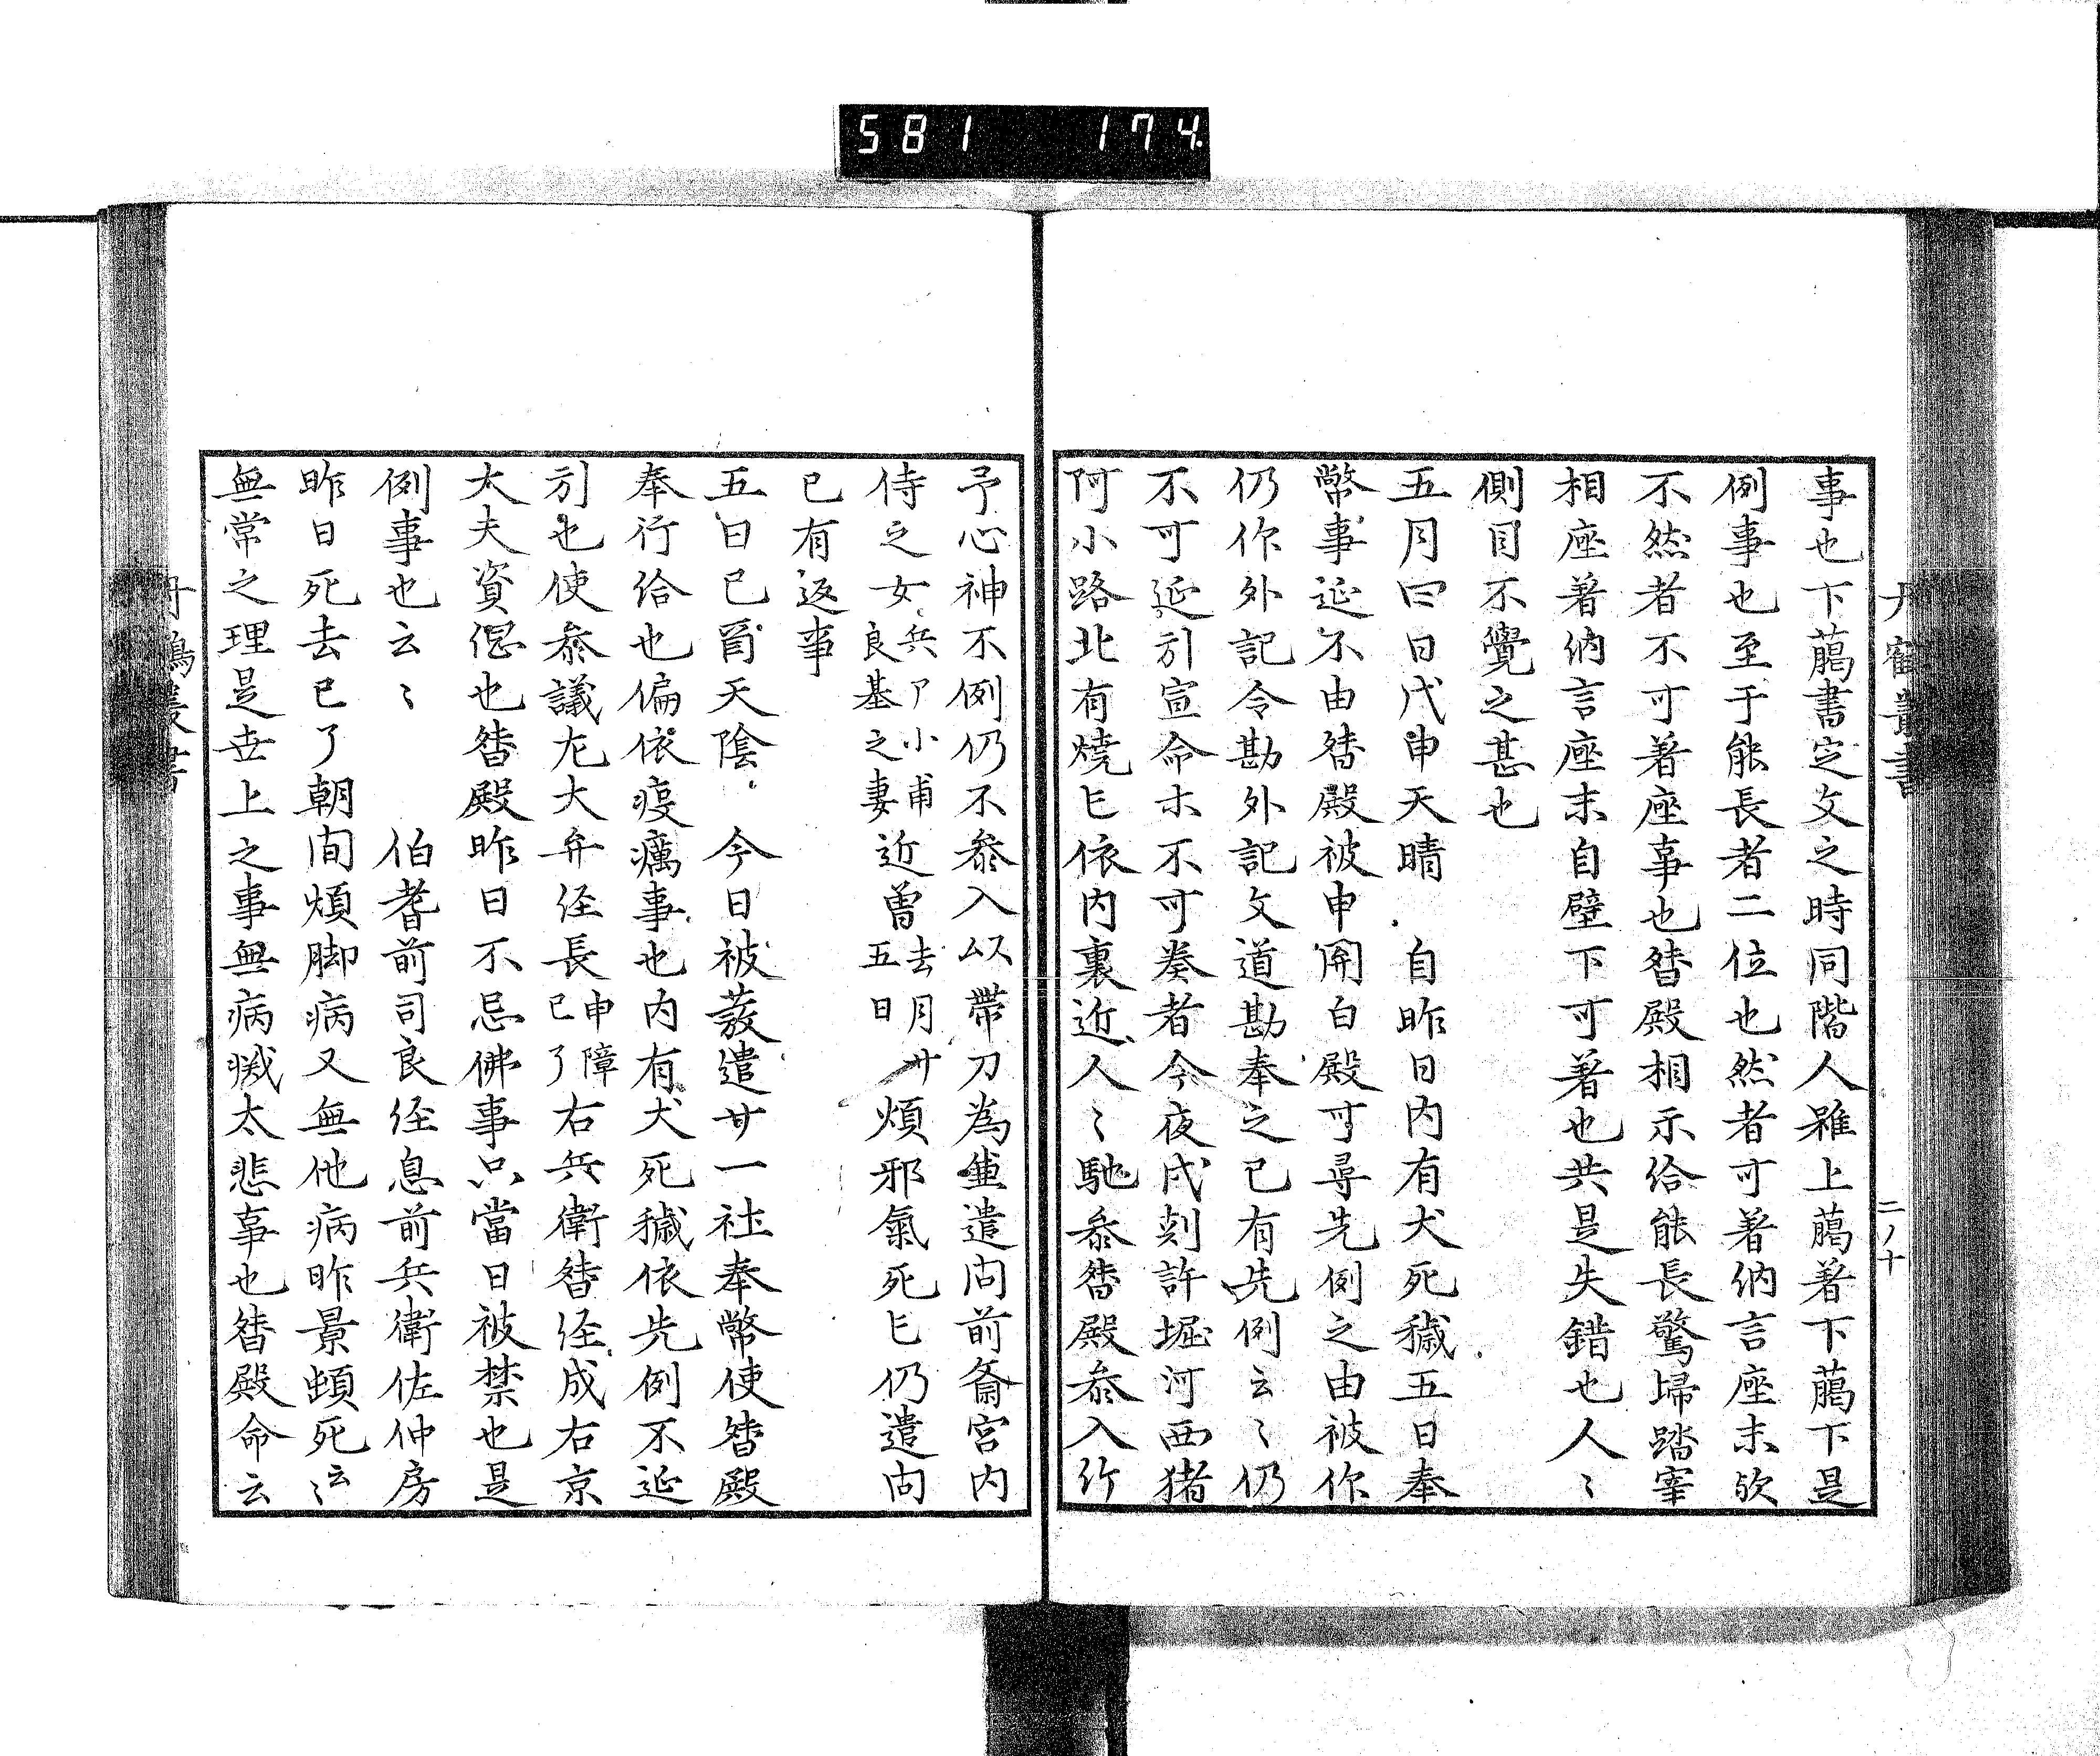 581 174
丹鶴叢書 二ノ十
事也下﨟書定文之時同階人雖上﨟著下﨟下是
例事也至于能長者二位也然者可著納言座末欤
不然者不可著座事也督殿相示給能長驚帰踏宰
相座著納言座末自壁下可著也共是失錯也人〻
側目不覺之甚也
五月四日戊申天晴 自昨日内有犬死穢五日奉
幣事延不由督殿被申関白殿可尋先例之由被作
仍作外記令勘外記文道勘奉之已有先例云〻仍
不可延引宣命木不可奏者今夜戌刻許堀河西猪
阿小路北有燒亡依内裏近人〻馳参督殿参入行
予心神不例仍不参入以帶刀為重遣问前斎宮内
侍之女兵ア小甫良基之妻近曽去月廿五日煩邪氣死亡仍遣问
已有返事
五日己酉天陰 今日被蔉遣廿一社奉幣使督殿
奉行給也偏依疫癘事也内有犬死穢依先例不延
引也使参議左大弁経長申障已了右兵衛督経成右京
大夫資偲也督殿昨日不忌佛事只當日被禁也是
例事也云〻 伯耆前司良経息前兵衛佐仲房
昨日死去已了朝间煩脚病又無他病昨景頓死云〻
無常之理是世上之事無病滅太悲事也督殿命云
丹鶴叢書